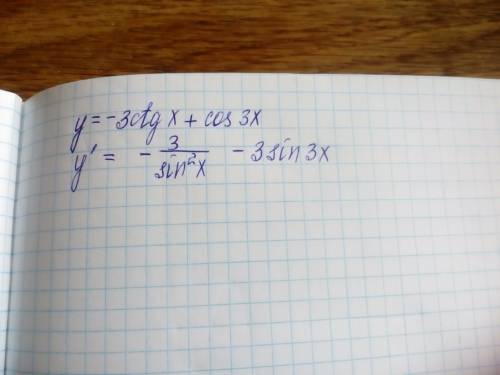 y = -3ctg x + cos 3x
y' = - 3/sin²x - 3 sin 3x